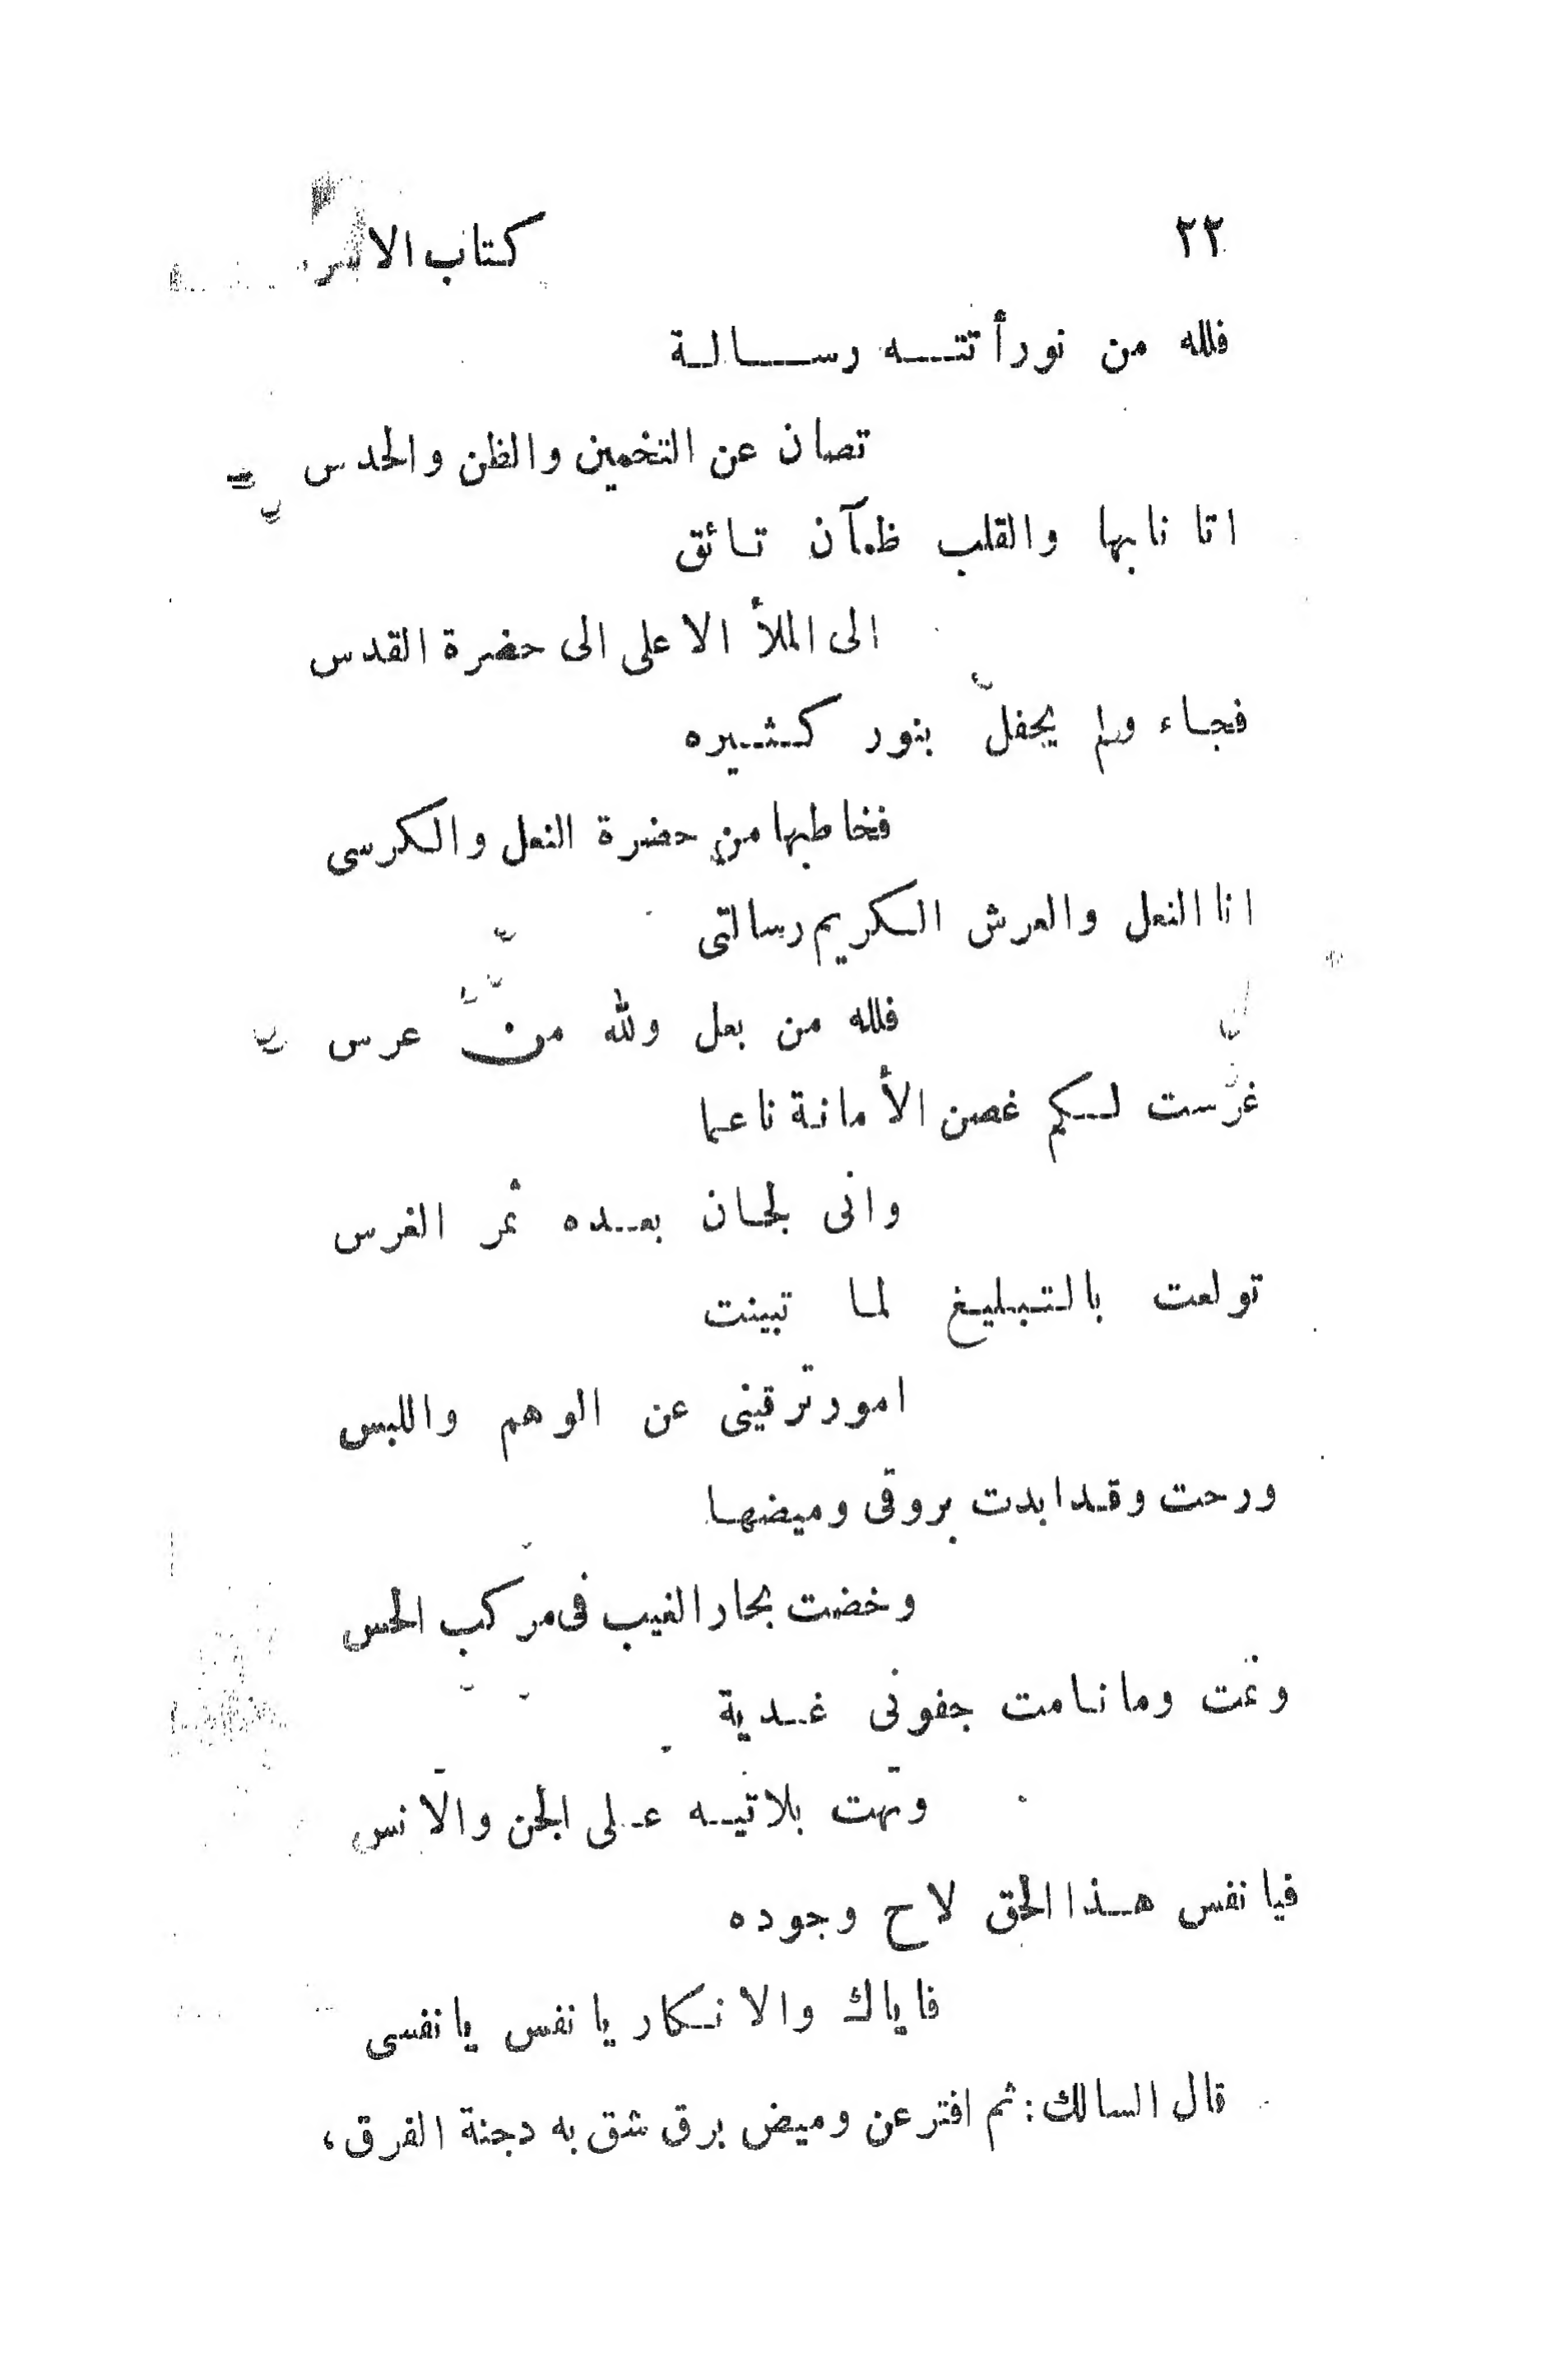 ٢٢ كتاب
فلله من نور أتته رسالة
تصان عن التخمين والظن والحدس
اتانا بها والقلب ظمآن تائق
الى الملأ الاعلى الى حضرة القدس
فجاء ولم يحفلّ بنور كثيره
فخاطبها من حضرة النعل والكرسى
انا النعل والعرش الكريم رسالتى
فلله من بعل ولله من عرس
غرست لكم غصن الأمانة ناعما
وانى لجان بعده ثمر الغرس
تولعت بالتبليغ لما تبينت
امور ترقينى عن الوهم واللبس
ورحت وقد ابدت بروقى وميضها
وخضت بحار الغيب فى مركب الحس
ونمت وما نامت جفونى غدية
وتهت بلاتيه على الجن والانس
فيا نفس هذا الحق لاح وجوده
فاياك والانكار يا نفس يا نفسى
قال السالك: ثم افتر عن وميض برق شق به دجنة الفرق،